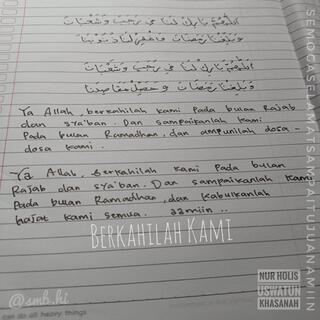 اَللّٰهُمَّ بَارِكْ لَنَا فِي رَجَبَ وَشَعْبَانَ
وَبَلِّغْنَا رَمَضَانَ وَاغْفِرْ لَنَا ذُنُوْبَنَا
اَللّٰهُمَّ بَارِكْ لَنَا فِي رَجَبَ وَشَعْبَانَ
وَبَلِّغْنَا رَمَضَانَ وَحَصِّلْ مَقَاصِدَنَا
Ya Allah, berkahilah kami pada bulan Rajab
dan sya'ban. Dan sampaikanlah kami
Pada bulan Ramadhan, dan ampunilah dosa-
dosa kami.
Ya Allah, berkahilah kami pada bulan
Rajab dan sya'ban. Dan sampaikanlah kami
pada bulan Ramadhan, dan kabulkanlah
hajat kami semua. aamiin ..
BERKAHILAH KAMI
SEMOGASELAMATSAMPAITUJUANAMIIN
NUR HOLIS
USWATUN
KHASANAH
@smb.hi
can do all heavy things